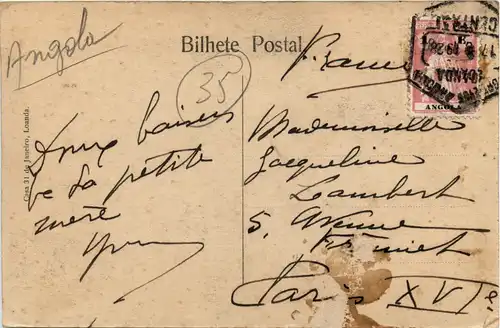 Angola
Bilhete Postal
35
France
Casa 31 de Janeiro, Loanda.
Doux baisers
de ta petite
mère
Mademoiselle
Jacqueline
Lambert
5, Avenue
Frémiet
Paris XVIe
LOANDA
ANGOLA